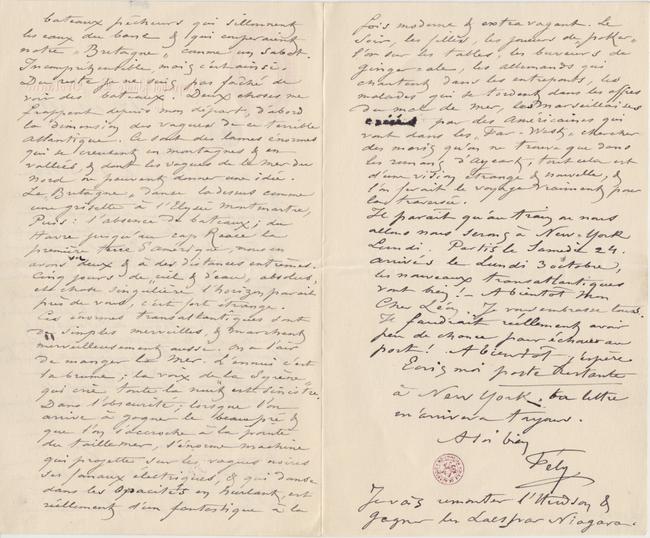 bateaux pêcheurs qui sillonnent
les eaux du banc & qui coupaient
notre "Bretagne" comme un sabot.
Incompréhensible, mais c'est ainsi.
Du reste je ne suis pas fâché de
voir des bateaux. Deux choses me
frappent depuis mon départ, d'abord
la dimension des vagues de ce terrible
Atlantique. Ce sont des lames énormes
qui se creusent en montagnes & en
vallées, & dont les vagues de la mer du
Nord ne peuvent donner une idée.
La "Bretagne" danse là dessus comme
une grisette à l'Elysée Montmartre,
Puis: l'absence de bateaux; du
Havre jusqu'au cap Race la
première terre d'Amérique, nous en
avons vu deux & à des distances extrêmes.
Cinq jours de ciel & d'eau, absolus,
et chose singulière l'horizon paraît
près de vous, c'est fort étrange.
Ces énormes transatlantiques sont
de simples merveilles, & marchent
merveilleusement aussi. On a l'air
de manger la mer. L'ennui c'est
la brume; la voix de la "Syrène"
qui crie toute la nuit est sinistre.
Dans l'obscurité, lorsque l'on
arrive à gagner le beaupré &
que l'on s'accroche à la pointe
du taillemer, l'énorme machine
qui projette sur les vagues noires
ses fanaux électriques, & qui danse
dans les opacités en hurlant, est
réellement d'un fantastique à la
fois moderne & extravagant. Le
soir, les filles, les joueurs de poker
l'or sur les tables, les buveurs de
ginger-ale, les allemands qui
chantent dans les entreponts, les
malades qui se tordent dans les affres
du mal de mer, les marseillaises
par des Américaines qui
vont dans les "Far-West" chercher
des maris qu'on ne trouve que dans
les romans d'Aycard, tout cela est
d'une vision étrange & nouvelle, &
l'on ferait le voyage vraiment pour
la traversée.
Il paraît qu'au train où nous
allons nous serons à New-York
Lundi. Partis le Samedi 24.
arrivés le Lundi 3 octobre,
les nouveaux transatlantiques
vont bien! — A bientôt mon
Cher Léon. Je vous embrasse tous.
Il faudrait réellement avoir
peu de chance pour échouer au
port! A bientôt j'espère
Ecris moi poste restante
à New York. ta lettre
m'arrivera toujours.
A toi bien
Fély
Je vais remonter l'Hudson &
gagner les Lacs par Niagara.